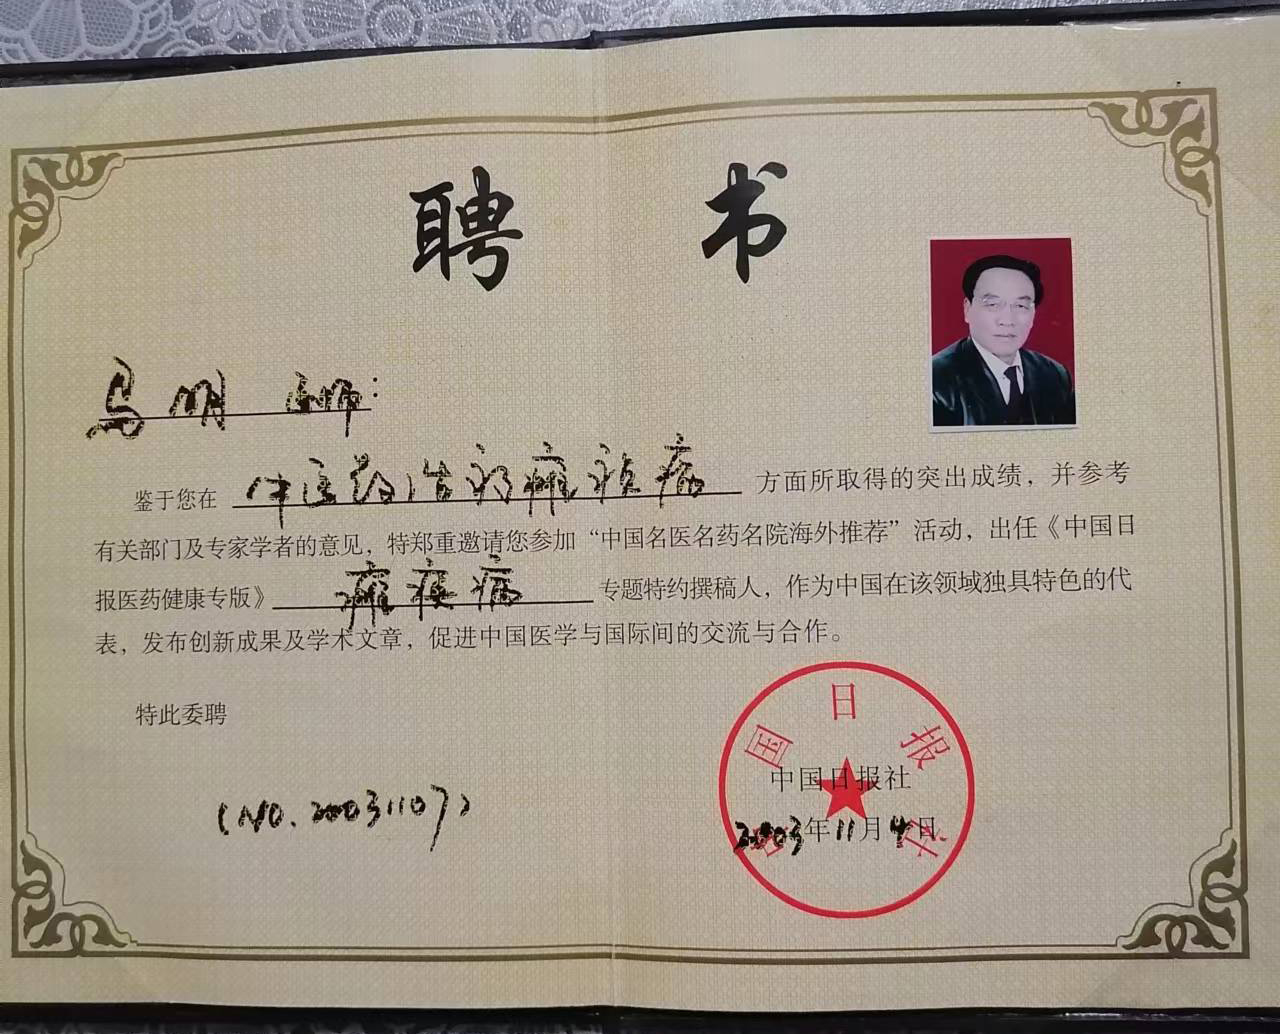 聘 书
马明 医师：
鉴于您在 中医药治疗 病 方面所取得的突出成绩，并参考
有关部门及专家学者的意见，特郑重邀请您参加“中国名医名药名院海外推荐”活动，出任《中国日
报医药健康专版》 病 专题特约撰稿人，作为中国在该领域独具特色的代
表，发布创新成果及学术文章，促进中国医学与国际间的交流与合作。
特此委聘
中国日报社
(NO.20031107)
2003年11月4日
中国日报社